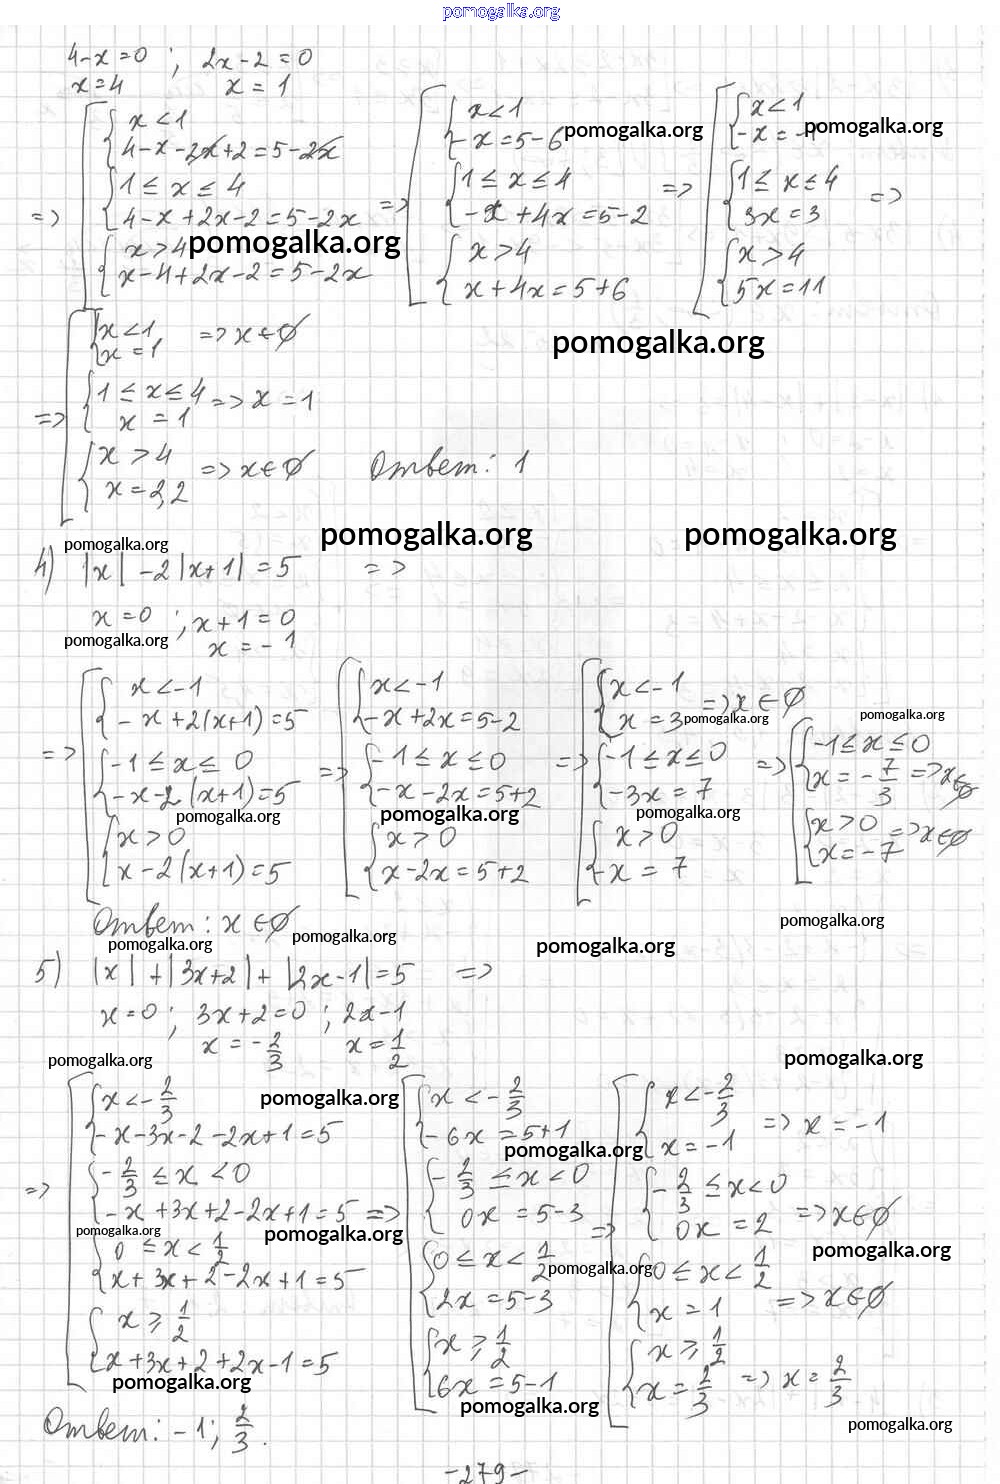 pomogalka.org
4-x=0 ; 2x-2=0
x=4 x=1
=> [ { x<1
4-x-2x+2=5-2x
{ 1≤x≤4
4-x+2x-2=5-2x
{ x>4
x-4+2x-2=5-2x
=> [ { x<1
-x=5-6
{ 1≤x≤4
-x+4x=5-2
{ x>4
x+4x=5+6
=> [ { x<1
-x=-1
{ 1≤x≤4
3x=3
{ x>4
5x=11
=>
pomogalka.org
pomogalka.org
pomogalka.org
pomogalka.org
=> [ { x<1
x=1 => x∈∅
{ 1≤x≤4
x=1 => x=1
{ x>4
x=2,2 => x∈∅
Ответ: 1
pomogalka.org
pomogalka.org
pomogalka.org
4) |x|-2|x+1|=5 =>
x=0 ; x+1=0
pomogalka.org x=-1
=> [ { x<-1
-x+2(x+1)=5
{ -1≤x≤0
-x-2(x+1)=5
{ x>0
x-2(x+1)=5
=> [ { x<-1
-x+2x=5-2
{ -1≤x≤0
-x-2x=5+2
{ x>0
x-2x=5+2
=> [ { x<-1
x=3 => x∈∅
{ -1≤x≤0
-3x=7
{ x>0
-x=7
=> [ { -1≤x≤0
x=-7/3 => x∈∅
{ x>0
x=-7 => x∈∅
pomogalka.org
pomogalka.org
pomogalka.org
pomogalka.org
pomogalka.org
Ответ: x∈∅
pomogalka.org
pomogalka.org
pomogalka.org
pomogalka.org
5) |x|+|3x+2|+|2x-1|=5 =>
x=0 ; 3x+2=0 ; 2x-1
x=-2/3 x=1/2
pomogalka.org
pomogalka.org
=> [ { x<-2/3
-x-3x-2-2x+1=5
{ -2/3≤x<0
-x+3x+2-2x+1=5
{ 0≤x<1/2
x+3x+2-2x+1=5
{ x≥1/2
x+3x+2+2x-1=5
=> [ { x<-2/3
-6x=5+1
{ -2/3≤x<0
0x=5-3
{ 0≤x<1/2
2x=5-3
{ x≥1/2
6x=5-1
=> [ { x<-2/3
x=-1 => x=-1
{ -2/3≤x<0
0x=2 => x∈∅
{ 0≤x<1/2
x=1 => x∈∅
{ x≥1/2
x=2/3 => x=2/3
pomogalka.org
pomogalka.org
pomogalka.org
pomogalka.org
pomogalka.org
pomogalka.org
pomogalka.org
pomogalka.org
pomogalka.org
Ответ: -1; 2/3.
-279-